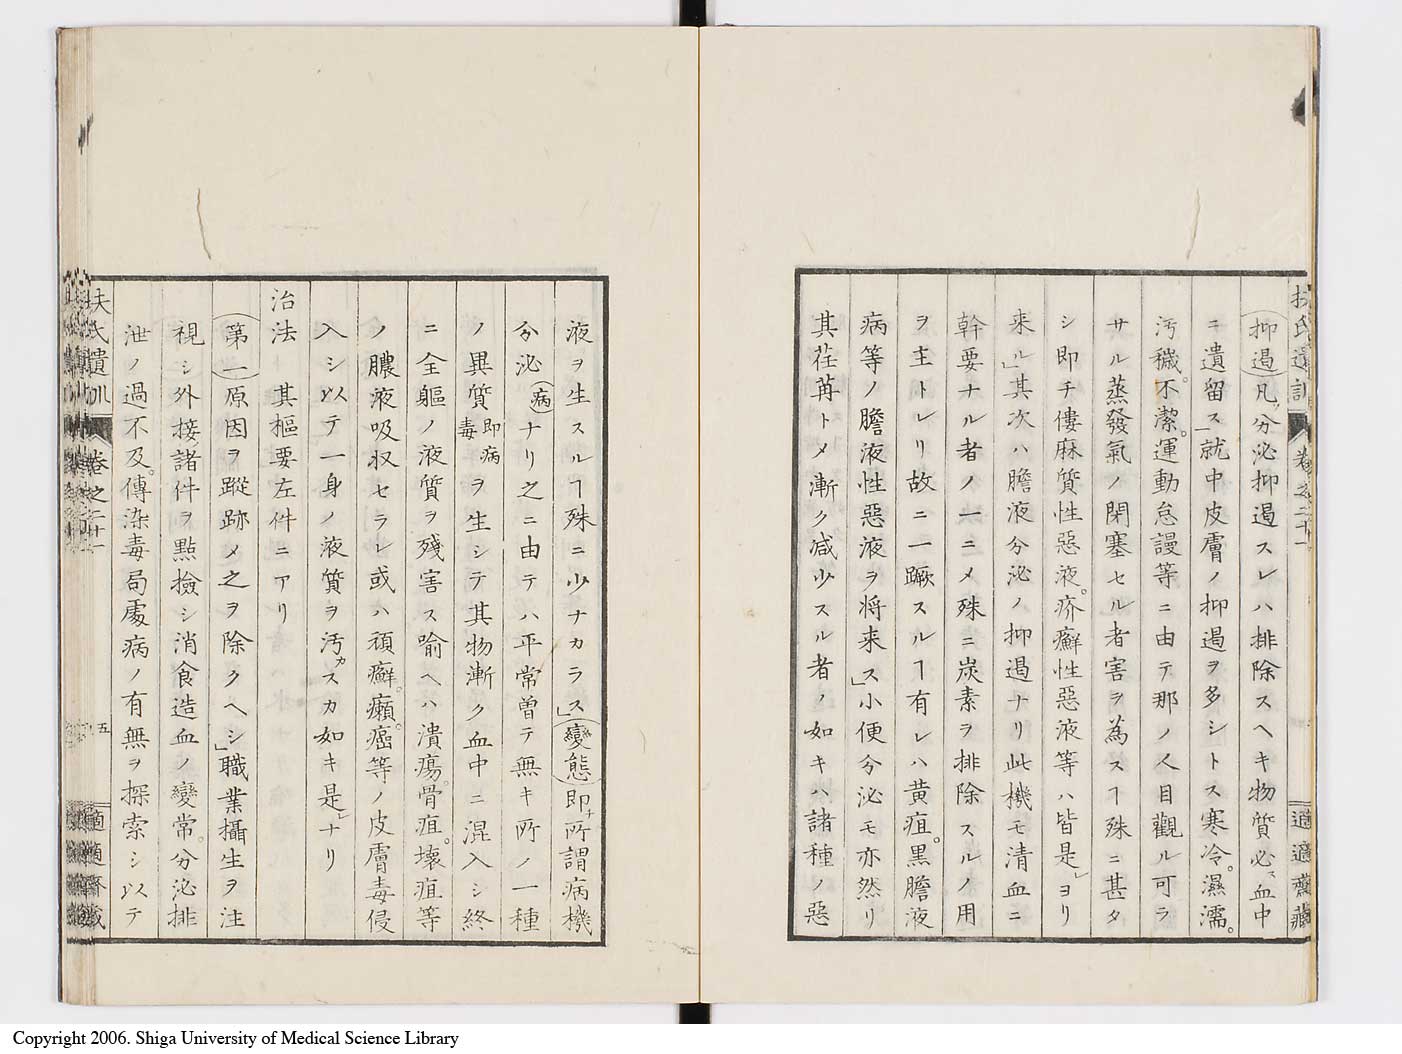 扶氏遺訓 卷之二十一 適適齋藏
抑遏凡ソ分泌抑遏スレハ排除スヘキ物質必ス血中
ニ遺留ス」就中皮膚ノ抑遏ヲ多シトス寒冷。濕濡。
汚穢。不潔。運動怠謾等ニ由テ那ノ人目觀ル可ラ
サル蒸發氣ノ閉塞セル者害ヲ為スヿ殊ニ甚タ
シ即チ僂麻質性惡液。疥癬性惡液等ハ皆是」ヨリ
来ル」其次ハ膽液分泌ノ抑遏ナリ此機モ清血ニ
幹要ナル者ノ一ニメ殊ニ炭素ヲ排除スルノ用
ヲ主トレリ故ニ一蹶スルヿ有レハ黄疸。黒膽液
病等ノ膽液性惡液ヲ将来ス」小便分泌モ亦然リ
其荏苒トメ漸ク減少スル者ノ如キハ諸種ノ惡
液ヲ生スルヿ殊ニ少ナカラス」變態即チ所謂病機
分泌病ナリ之ニ由テハ平常曽テ無キ所ノ一種
ノ異質即病毒ヲ生シテ其物漸ク血中ニ混入シ終
ニ全軀ノ液質ヲ殘害ス喻ヘハ潰瘍。骨疽。壞疽等
ノ膿液吸収セラレ或ハ頑癬。癩。癌等ノ皮膚毒侵
入シ以テ一身ノ液質ヲ汚カスカ如キ是」ナリ
治法 其樞要左件ニアリ
第一原因ヲ蹤跡メ之ヲ除クヘシ」職業攝生ヲ注
視シ外接諸件ヲ點撿シ消食造血ノ變常。分泌排
泄ノ過不及。傳染毒局處病ノ有無ヲ探索シ以テ
扶氏遺訓 卷之二十一 五 適適齋藏
Copyright 2006. Shiga University of Medical Science Library